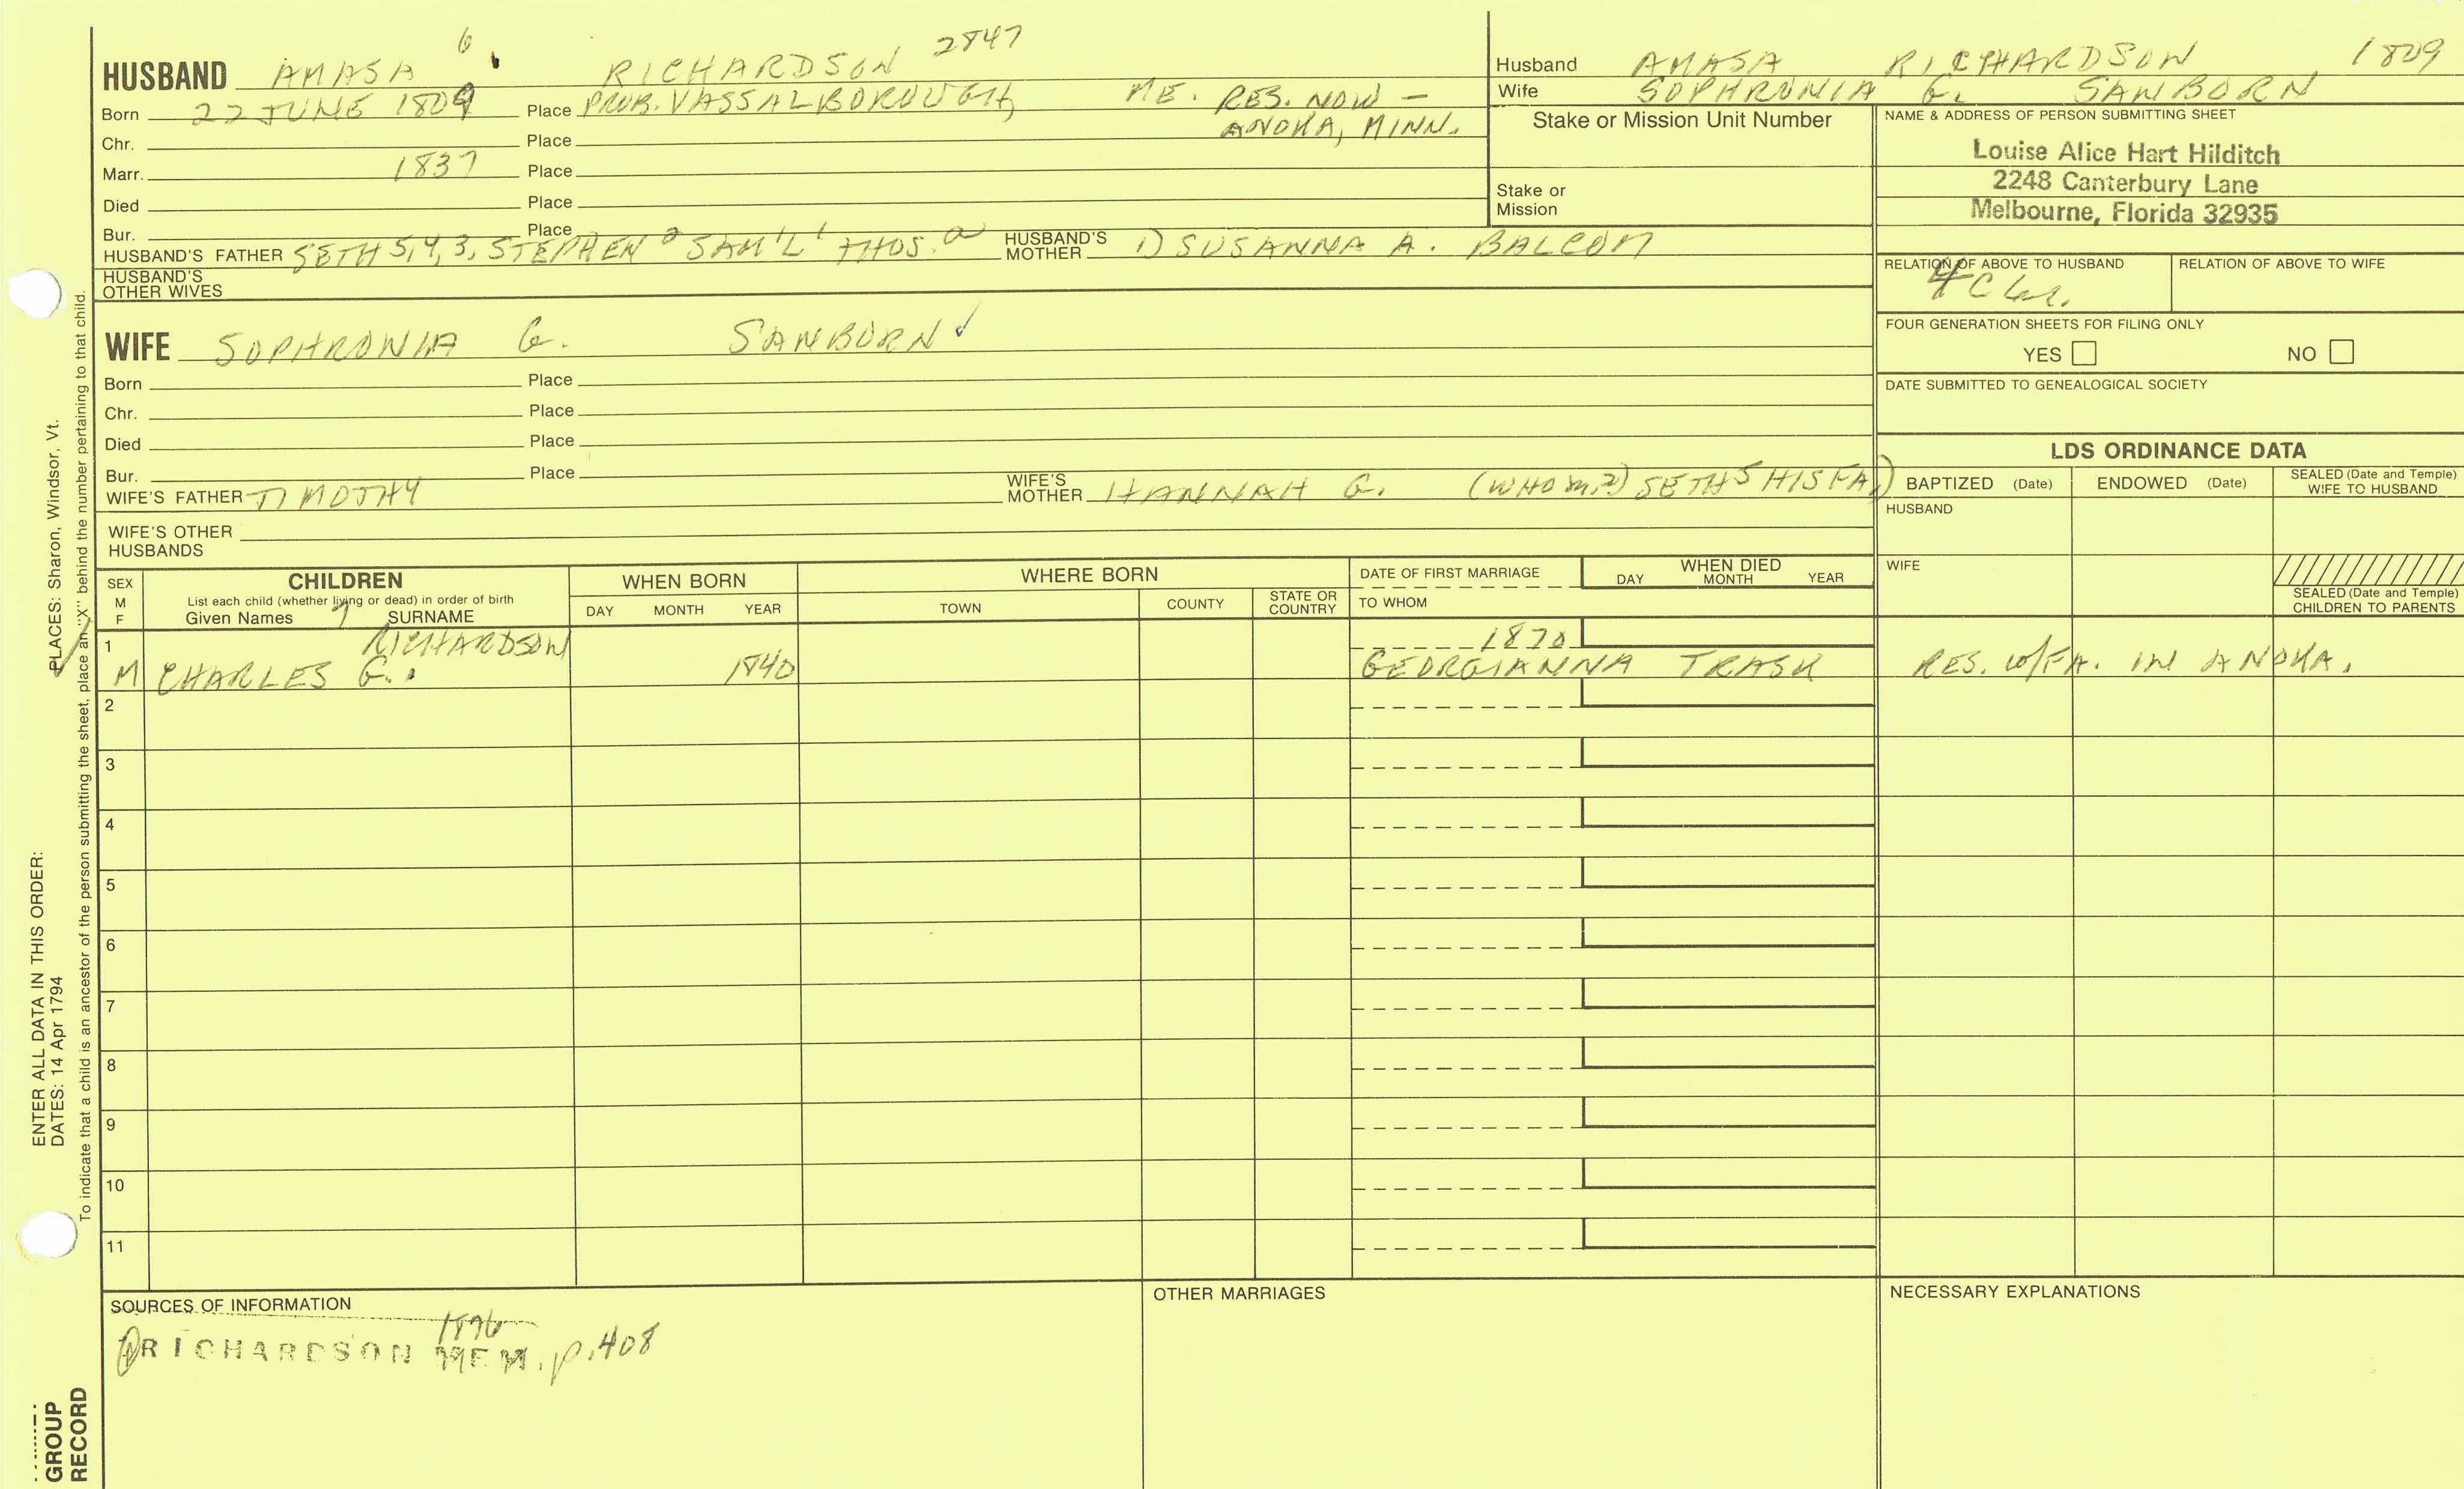 HUSBAND AMASA 6 RICHARDSON 2847
Born 22 JUNE 1809 Place PROB. VASSALBOROUGH, ME. RES. NOW —
ANOKA, MINN.
Chr. Place
Marr. 1837 Place
Died Place
Bur. Place
HUSBAND'S FATHER SETH 5, 4, 3, STEPHEN 2 SAM'L 1 THOS. a HUSBAND'S MOTHER 1) SUSANNA A. BALCOM
HUSBAND'S OTHER WIVES
WIFE SOPHRONIA G. SANBORN
Born Place
Chr. Place
Died Place
Bur. Place
WIFE'S FATHER TIMOTHY WIFE'S MOTHER HANNAH G. (WHO M. 2) SETH 5 HIS FA.)
WIFE'S OTHER HUSBANDS
Husband AMASA RICHARDSON 1809
Wife SOPHRONIA G. SANBORN
Stake or Mission Unit Number
Stake or Mission
NAME & ADDRESS OF PERSON SUBMITTING SHEET
Louise Alice Hart Hilditch
2248 Canterbury Lane
Melbourne, Florida 32935
RELATION OF ABOVE TO HUSBAND RELATION OF ABOVE TO WIFE
4C
FOUR GENERATION SHEETS FOR FILING ONLY
YES NO
DATE SUBMITTED TO GENEALOGICAL SOCIETY
LDS ORDINANCE DATA
BAPTIZED (Date) ENDOWED (Date) SEALED (Date and Temple) WIFE TO HUSBAND
HUSBAND
WIFE
SEALED (Date and Temple) CHILDREN TO PARENTS
SEX M F
CHILDREN
List each child (whether living or dead) in order of birth
Given Names 7 SURNAME
WHEN BORN
DAY MONTH YEAR
WHERE BORN
TOWN COUNTY STATE OR COUNTRY
DATE OF FIRST MARRIAGE
TO WHOM
WHEN DIED
DAY MONTH YEAR
1 RICHARDSON 1870
M CHARLES G. 1840 GEORGIANNA TRASK RES. W/FA. IN ANOKA.
2
3
4
5
6
7
8
9
10
11
SOURCES OF INFORMATION
1876
① RICHARDSON MEM. p. 408
OTHER MARRIAGES
NECESSARY EXPLANATIONS
ENTER ALL DATA IN THIS ORDER:
DATES: 14 Apr 1794
PLACES: Sharon, Windsor, Vt.
To indicate that a child is an ancestor of the person submitting the sheet, place an "X" behind the number pertaining to that child.
GROUP
RECORD